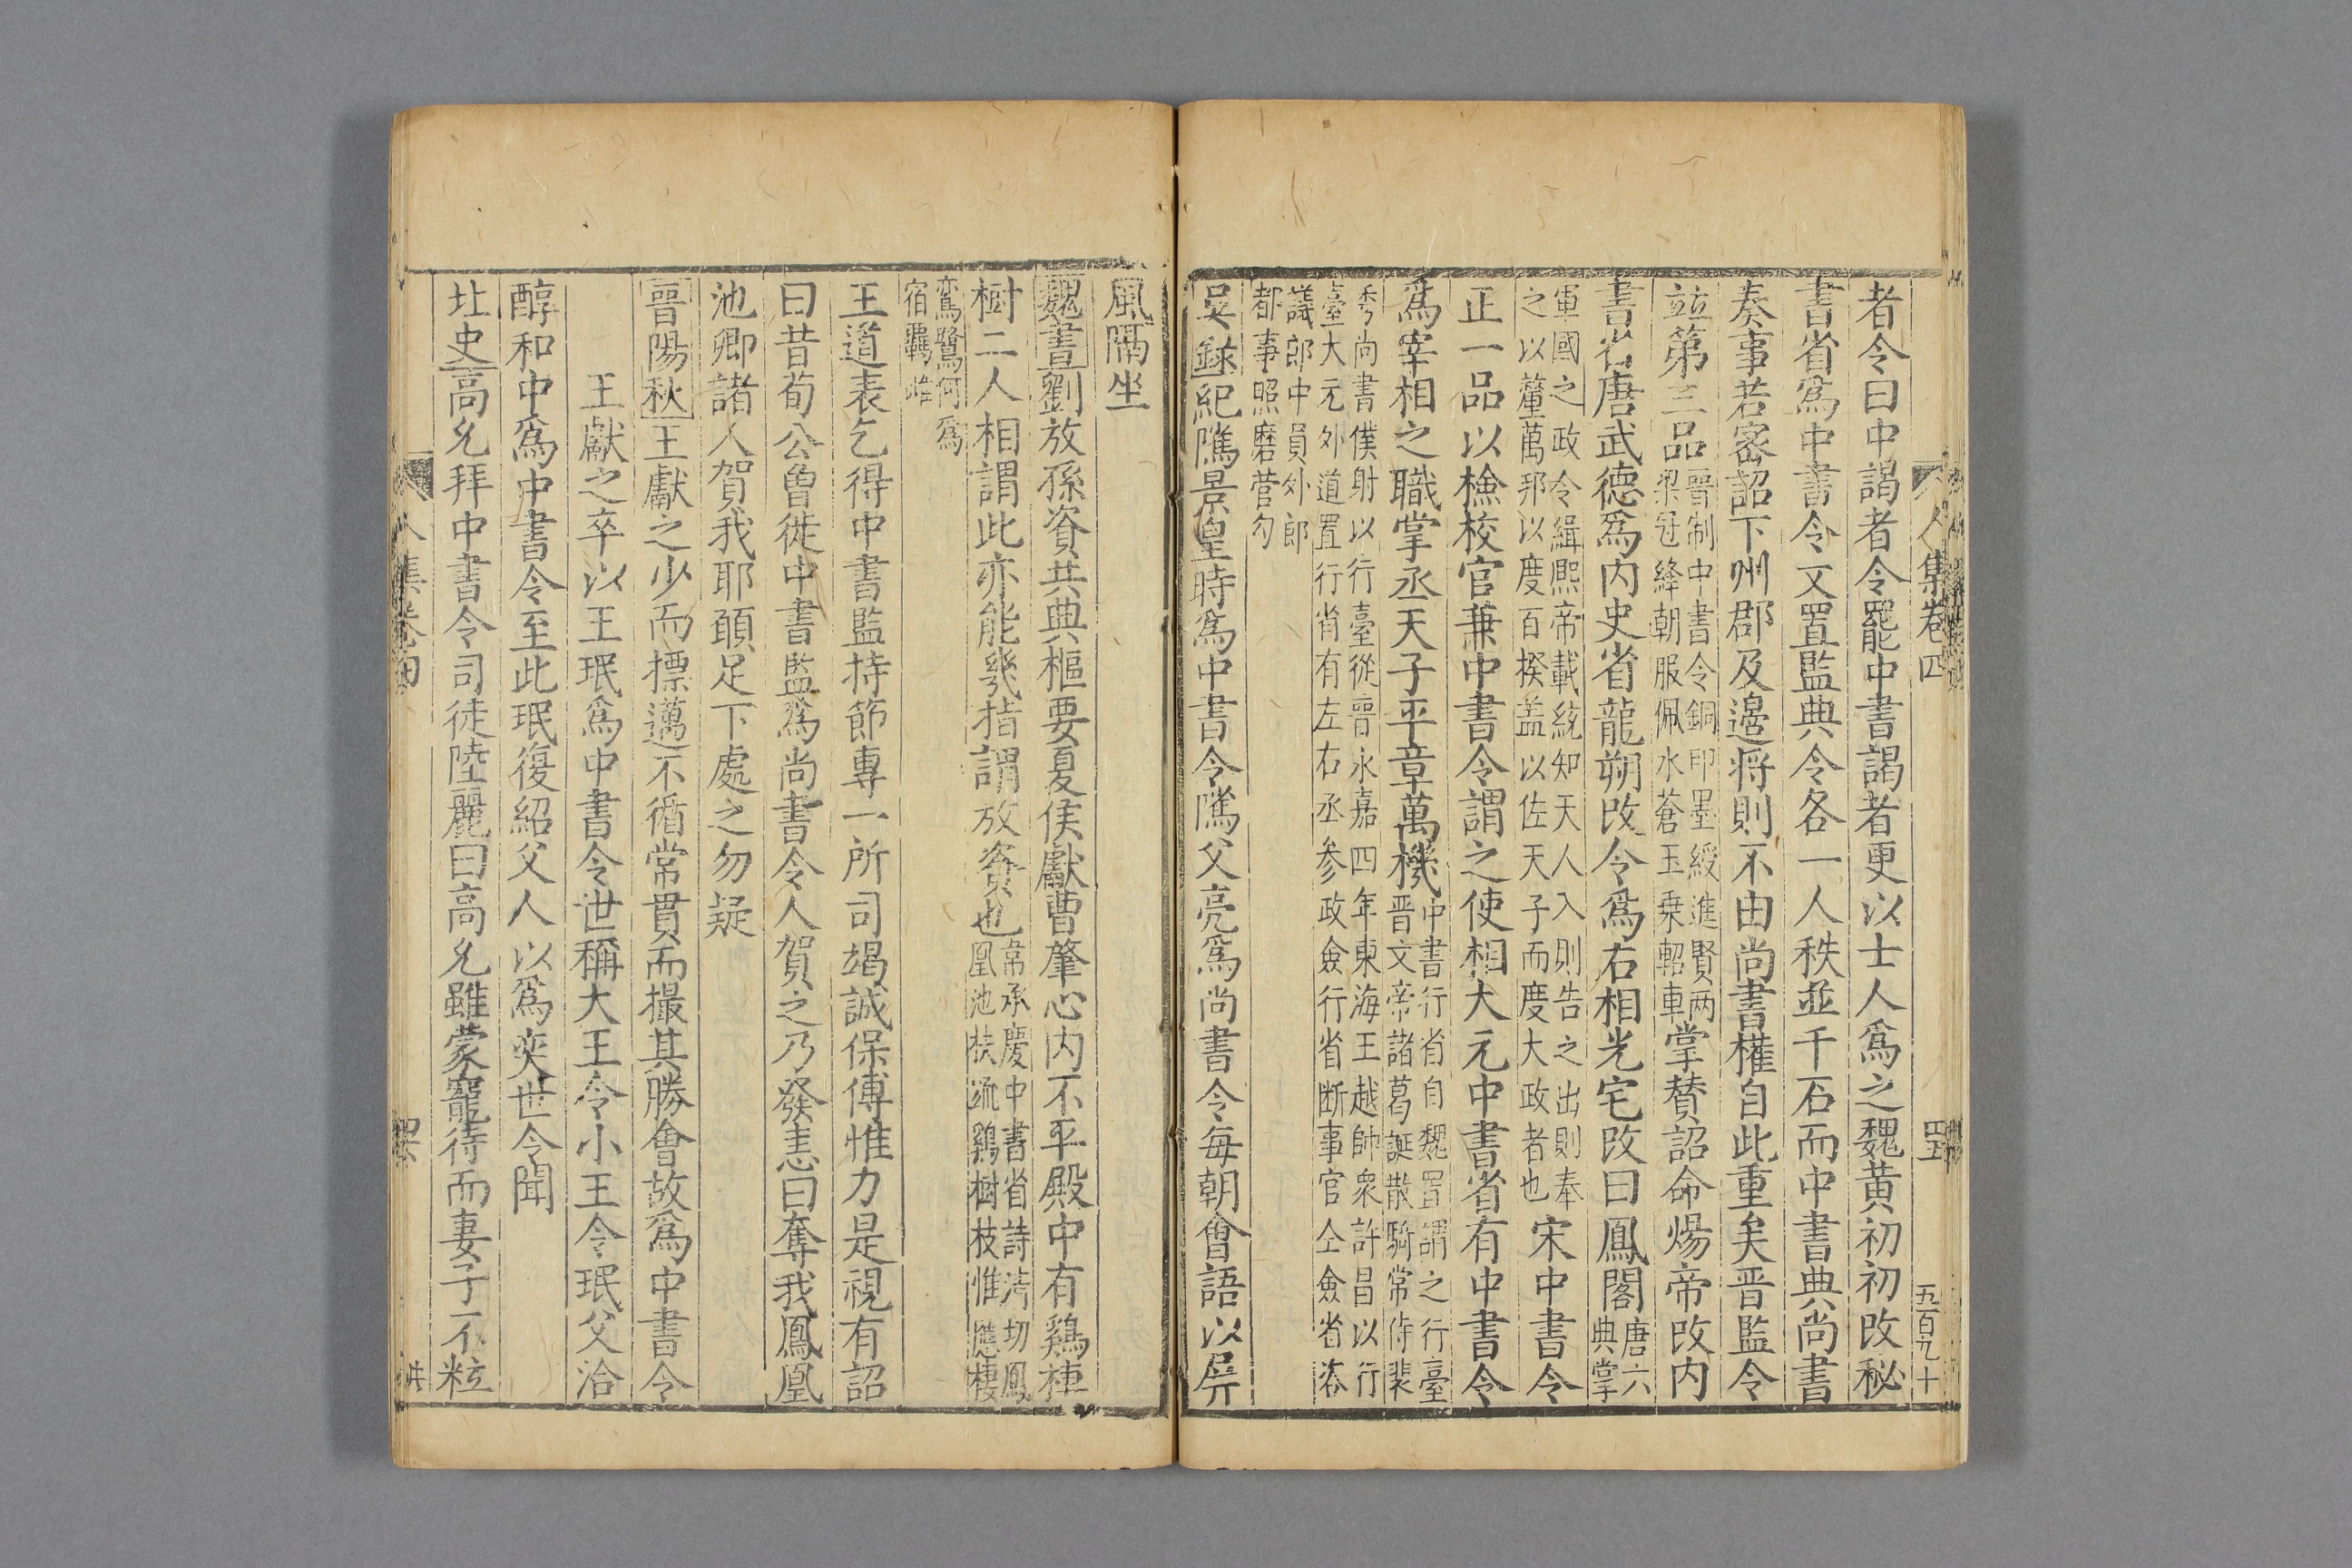 人集卷四
五百九十
者令曰中謁者令罷中書謁者更以士人爲之魏黃初初改秘
書省爲中書令又置監典令各一人秩並千石而中書典尚書
奏事若密詔下州郡及邊将則不由尚書權自此重矣晉監令
並第三品
晋制中書令銅印墨綬進賢两
梁冠絳朝服佩水蒼玉乗軺車
掌賛詔命煬帝改内
書省唐武德爲内史省龍朔改令爲右相光宅改曰鳳閣
唐六
典掌
軍國之政令緝熈帝載統知天人入則告之出則奉
之以釐萬邦以度百揆盖以佐天子而度大政者也
宋中書令
正一品以檢校官兼中書令謂之使相大元中書省有中書令
爲宰相之職掌丞天子平章萬機
中書行省自魏置謂之行臺
晋文帝諸葛誕散騎常侍裴
秀尚書僕射以行臺從晋永嘉四年東海王越帥衆許昌以行
臺大元外道置行省有左右丞参政僉行省断事官仝僉省
議郎中員外郎
都事照磨管勾
吳錄紀隲景皇時爲中書令隲父亮爲尚書令每朝會語以屏
風隔坐
魏書劉放孫資共典樞要夏侯獻曹肇心内不平殿中有鷄棲
樹二人相謂此亦能幾指謂放資也
韋承慶中書省詩清切鳳
凰池扶疏鷄樹枝惟應棲
鸞鷺何爲
宿羈雌
王道表乞得中書監持節專一所司竭誠保傅惟力是視有詔
曰昔荀公曾從中書監爲尚書令人賀之乃發恚曰奪我鳳凰
池卿諸人賀我耶頋足下處之勿疑
晋陽秋王獻之少而摽邁不循常貫而撮其勝會故爲中書令
王獻之卒以王珉爲中書令世稱大王令小王令珉父洽
醇和中爲中書令至此珉復紹父人以爲奕世令聞
北史高允拜中書令司徒陸麗曰高允雖蒙寵待而妻子不粒
人集卷四